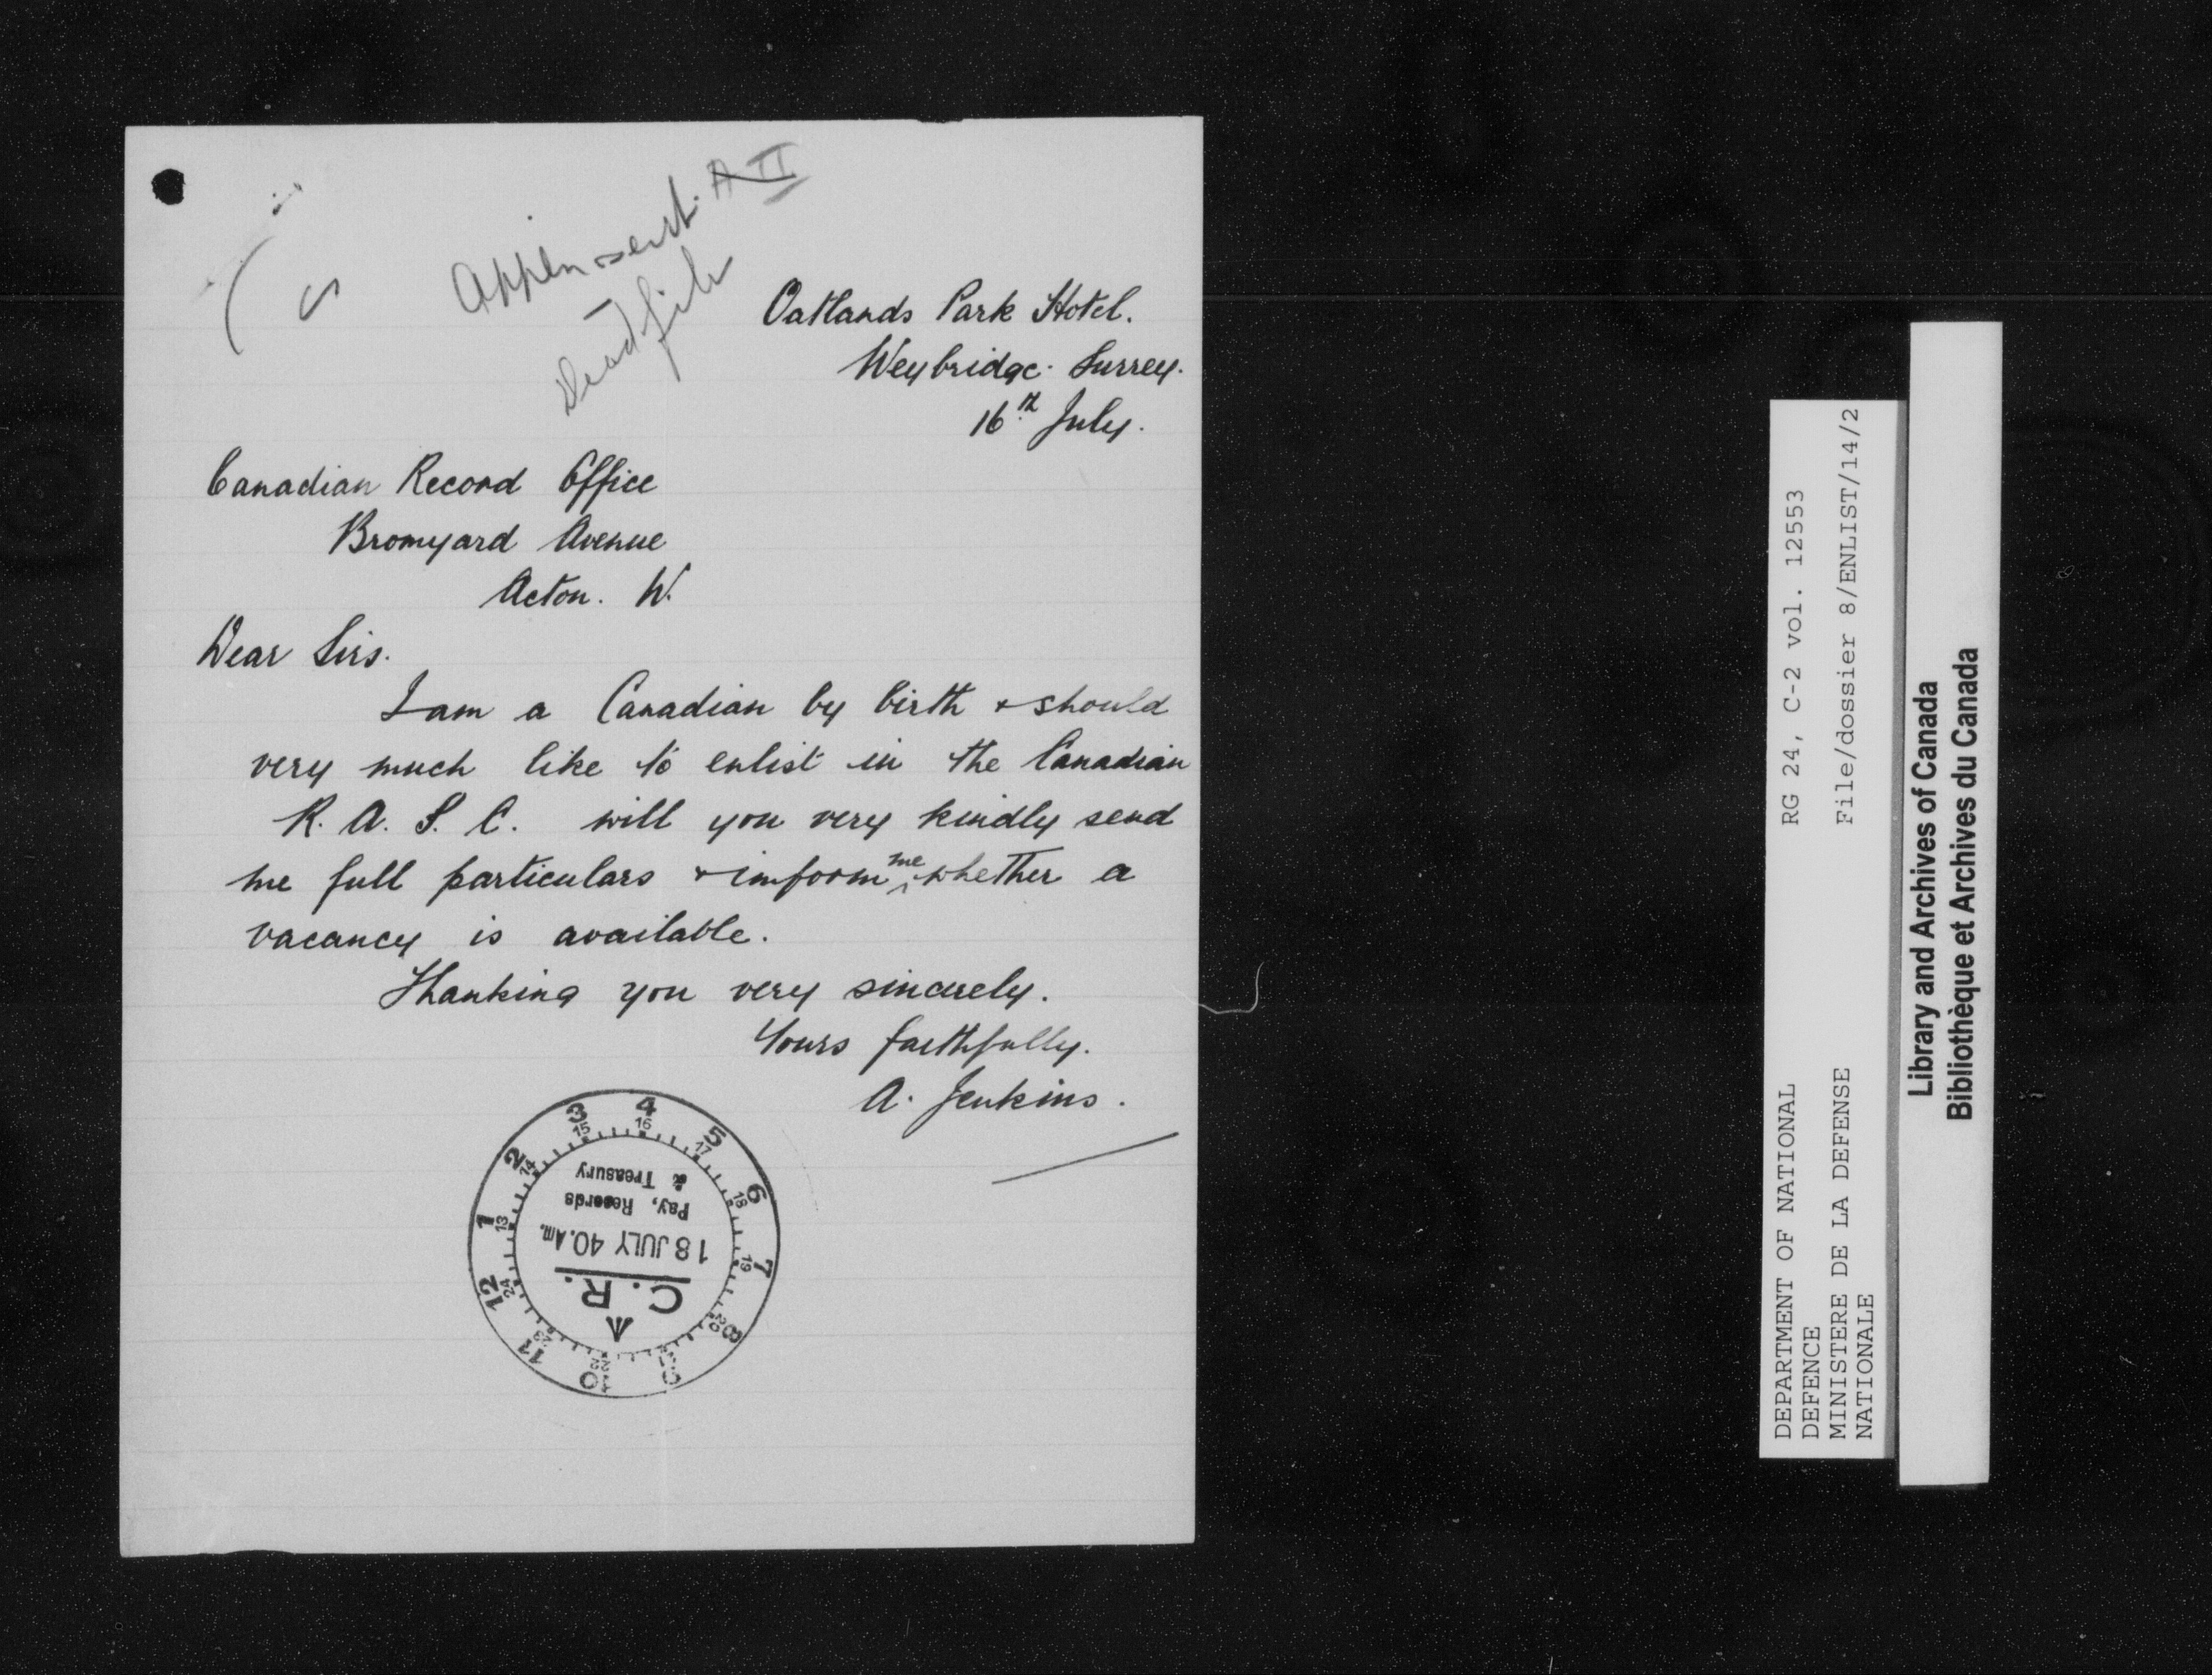 A II
Appln sent.
Dead file
Oatlands Park Hotel.
Weybridge. Surrey.
16th July.
Canadian Record Office
Bromyard Avenue
Acton. W.
Dear Sirs.
I am a Canadian by birth & should
very much like to enlist in the Canadian
R. A. S. C. will you very kindly send
me full particulars & imform me whether a
vacancy is available.
Thanking you very sincerely.
Yours faithfully.
A. Jenkins.
C. R.
18 JULY 40. AM.
Pay, Records
& Treasury
1 2 3 4 5 6 7 8 9 10 11 12
13 14 15 16 17 18 19 20 21 22 23 24
DEPARTMENT OF NATIONAL
DEFENCE
MINISTERE DE LA DEFENSE
NATIONALE
RG 24, C-2 vol. 12553
File/dossier 8/ENLIST/14/2
Library and Archives of Canada
Bibliothèque et Archives du Canada